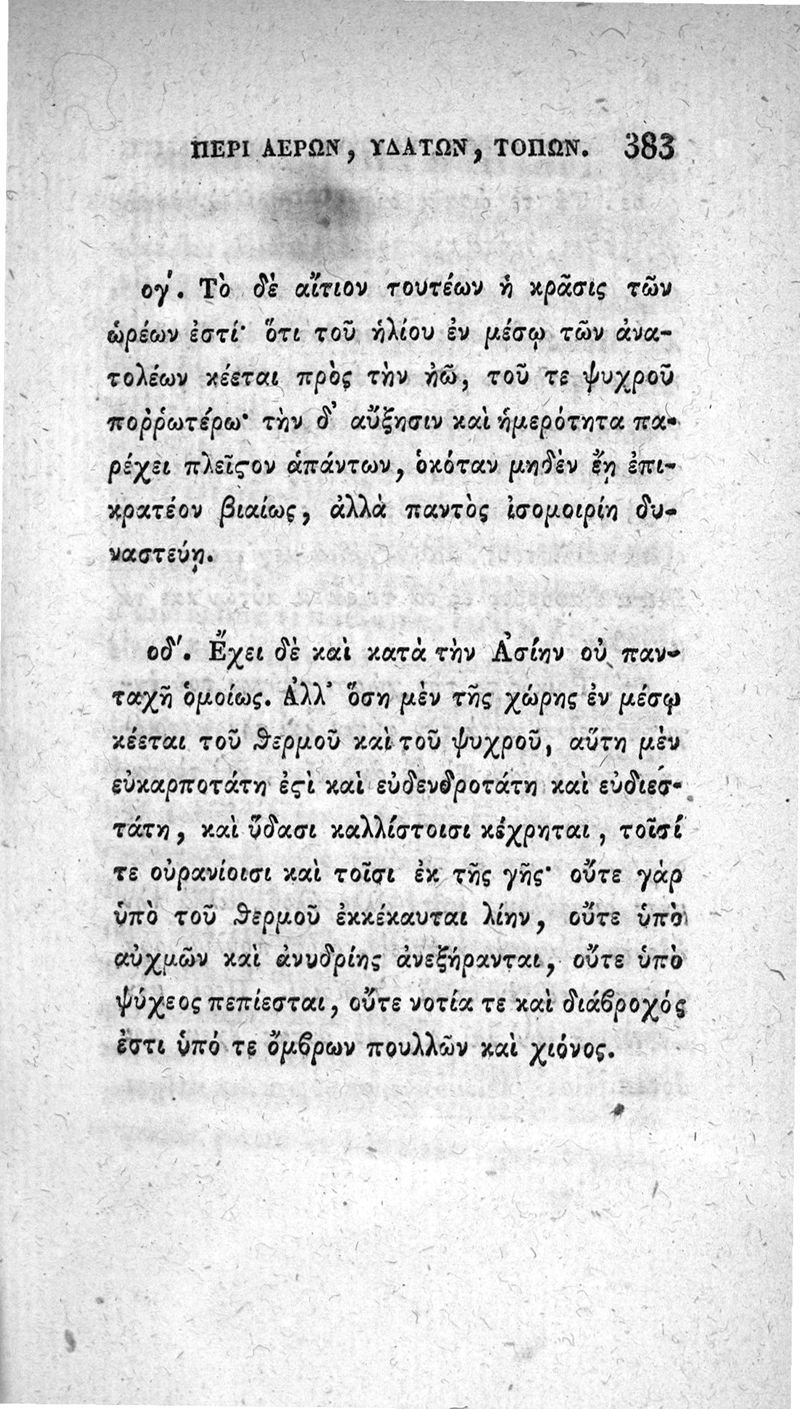 ΠΕΡΙ ΑΕΡΩΝ, ΥΔΑΤΩΝ, ΤΟΠΩΝ. 383
ογ΄. Τὸ δὲ αἴτιον τουτέων ἡ κρᾶσις τῶν
ὡρέων ἐστί· ὅτι τοῦ ἡλίου ἐν μέσῳ τῶν ἀνα-
τολέων κέεται πρὸς τὴν ἠῶ, τοῦ τε ψυχροῦ
ποῤῥωτέρω· τὴν δ’ αὔξησιν καὶ ἡμερότητα πα-
ρέχει πλεῖϛον ἁπάντων, ὁκόταν μηδὲν ἔῃ ἐπι-
κρατέον βιαίως, ἀλλὰ παντὸς ἰσομοιρίη δυ-
ναστεύῃ.
οδ΄. Ἔχει δὲ καὶ κατὰ τὴν Ἀσίην οὐ παν-
ταχῆ ὁμοίως. Ἀλλ’ ὅση μὲν τῆς χώρης ἐν μέσῳ
κέεται τοῦ ϑερμοῦ καὶ τοῦ ψυχροῦ, αὕτη μὲν
εὐκαρποτάτη ἐϛὶ καὶ εὐδενδροτάτη καὶ εὐδιεσ-
τάτη, καὶ ὕδασι καλλίστοισι κέχρηται, τοῖσί
τε οὐρανίοισι καὶ τοῖσι ἐκ τῆς γῆς· οὔτε γὰρ
ὑπὸ τοῦ ϑερμοῦ ἐκκέκαυται λίην, οὔτε ὑπὸ
αὐχμῶν καὶ ἀνυδρίης ἀνεξήρανται, οὔτε ὑπὸ
ψύχεος πεπίεσται, οὔτε νοτία τε καὶ διάϐροχός
ἐστι ὑπό τε ὄμϐρων πουλλῶν καὶ χιόνος.